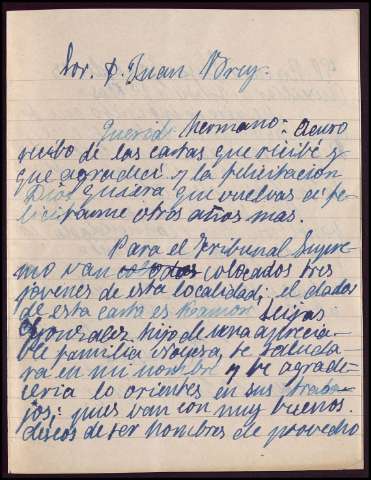 Sor. D. Juan Brey.
Querido hermano: acuso
recibo de las cartas que recibí y
que agradecí y la felicitación
Dios quiera que vuelvas a fe-
licitarme otros años mas.
Para el Tribunal Supre-
mo van colocados tres
jovenes de esta localidad; el dador
de esta carta es Ramón Seijas
Gonzalez hijo de una aprecia-
ble familia
te saluda
ra en mi nombre y te agrade-
ceria lo orientes en sus traba-
jos; pues van con muy buenos
deseos de ser hombres de provecho